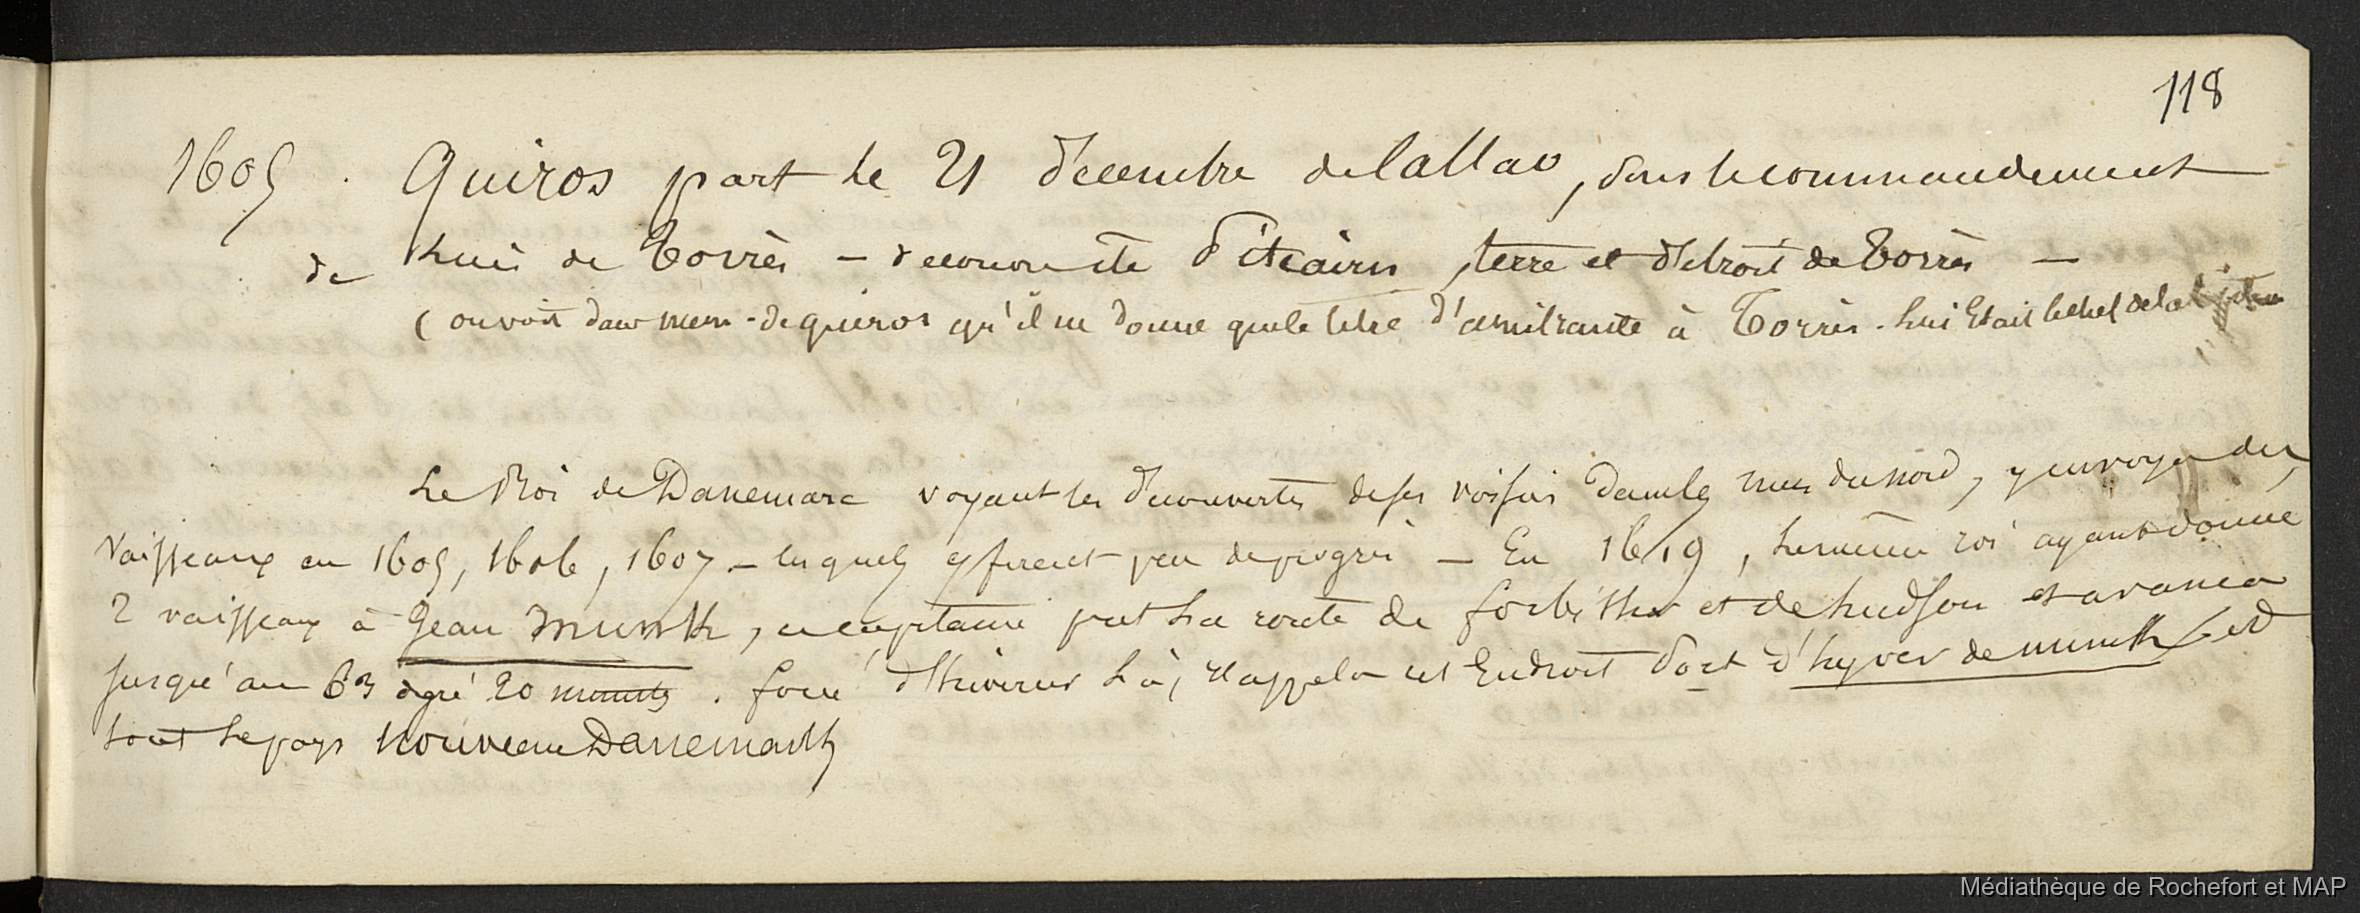 118
1605. Quiros part le 21 Décembre de Callao, sous le commandement
de Luis de Torrès – découvre île Pitcairn, terre et détroit de Torrès –
( on voit dans mem. de quiros qu'il ne donne que le titre d'amirante à Torrès. Lui était le chef de la
Le Roi de Danemarc voyant les découvertes de ses voisins dans les mers du nord, y envoya des
vaisseaux en 1605, 1606, 1607 – lesquels y firent peu de progrès – En 1619, le même roi ayant donné
2 vaisseaux à Jean Munk, ce capitaine prit la route de forbisher et de hudson et avança
jusqu'au 63 degré 20 minutes. forcé d'hiverner là, il appela cet Endroit Port d'hyver de munk et
tout le pays nouveau Danemark
Médiathèque de Rochefort et MAP